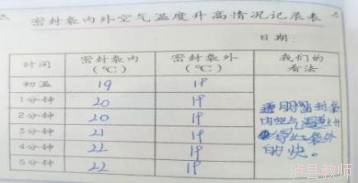 密封袋内外空气温度升高情况记录表
日期:
时间 密封袋内(℃) 密封袋外(℃) 我们的看法
初温 19 19
1分钟 20 19
2分钟 20 19
3分钟 21 19
4分钟 22 19
5分钟 22 19
透明密封袋
内的空气温度上
升得比袋外
的快。